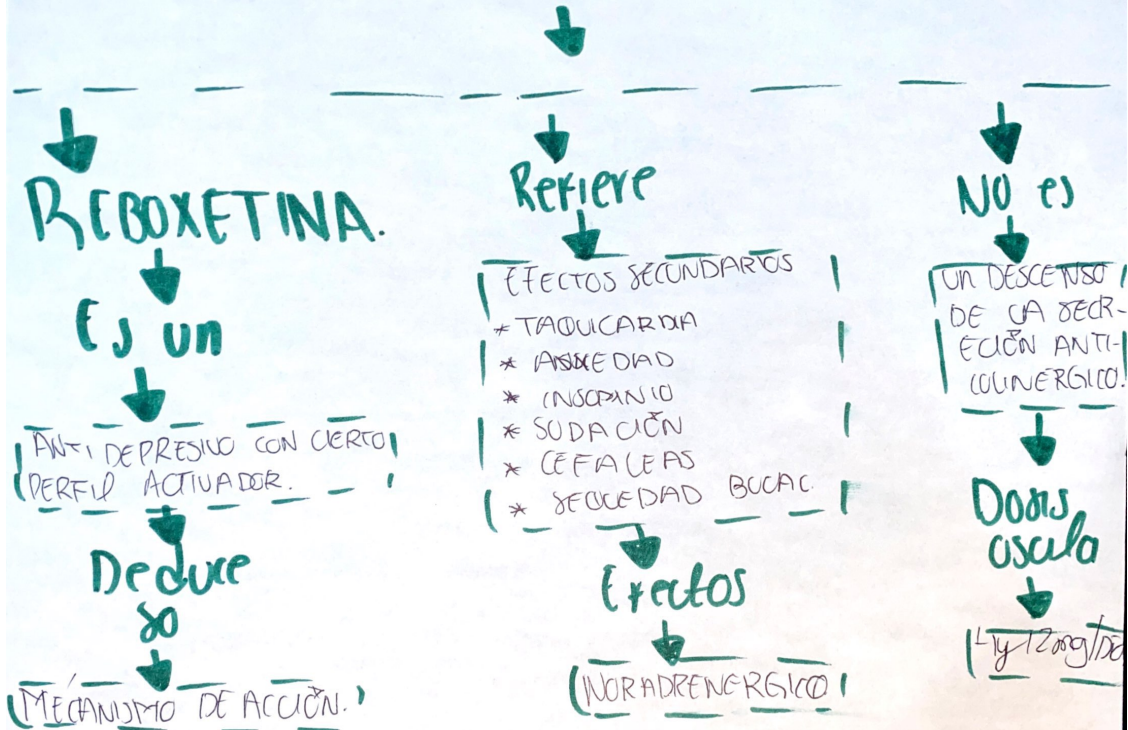 REBOXETINA.
Es un
ANTIDEPRESIVO CON CIERTO
PERFIL ACTIVADOR.
Deduce
so
MECANISMO DE ACCIÓN.
Refiere
EFECTOS SECUNDARIOS
* TAQUICARDIA
* ANSIEDAD
* INSOMNIO
* SUDACIÓN
* CEFALEAS
* SEQUEDAD BUCAL.
Efectos
NORADRENERGICO
NO es
UN DESCENSO
DE LA SECR-
ECIÓN ANTI-
COLINERGICO.
Dosis
oscila